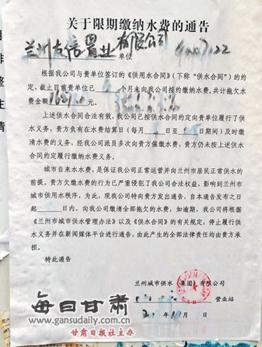 关于限期缴纳水费的通告
兰州 置业有限公司 单位
根据我公司与贵单位签订的《供用水合同》(下称“供水合同”)的约
定,截止目前贵单位已 个月未向我公司按约缴纳水费,共计拖欠水
费金额
上述供水合同合法有效,我公司已按供水合同约定向贵单位履行了供
水义务,贵方负有在水费结算日(每月 日至 日期间)及时缴
清水费的义务,经我公司派员多次与贵方交涉、协调,贵方仍未按上述供水
合同约定履行缴纳水费义务。
城市自来水水费,是保证我公司正常运营并向兰州市居民正常供水的
前提,贵方欠缴水费的行为已严重侵犯了我公司合法权益,影响到兰州市
城市用水秩序。为此,现我公司特向贵方发出通告,自本通告发布之日
起 日内,向我公司缴清全部拖欠的水费,如逾期,我公司将根据
《兰州市城市供水管理办法》以及《供水合同》的有关规定,停止履行供
水义务并在新闻媒体平台进行通告,由此产生的全部法律责任均由贵方承
担。
特此通告
兰州城市供水(集团)有限公司
营业站
年 月 日
每日甘肃
www.gansudaily.com.cn
甘肃日报社主办